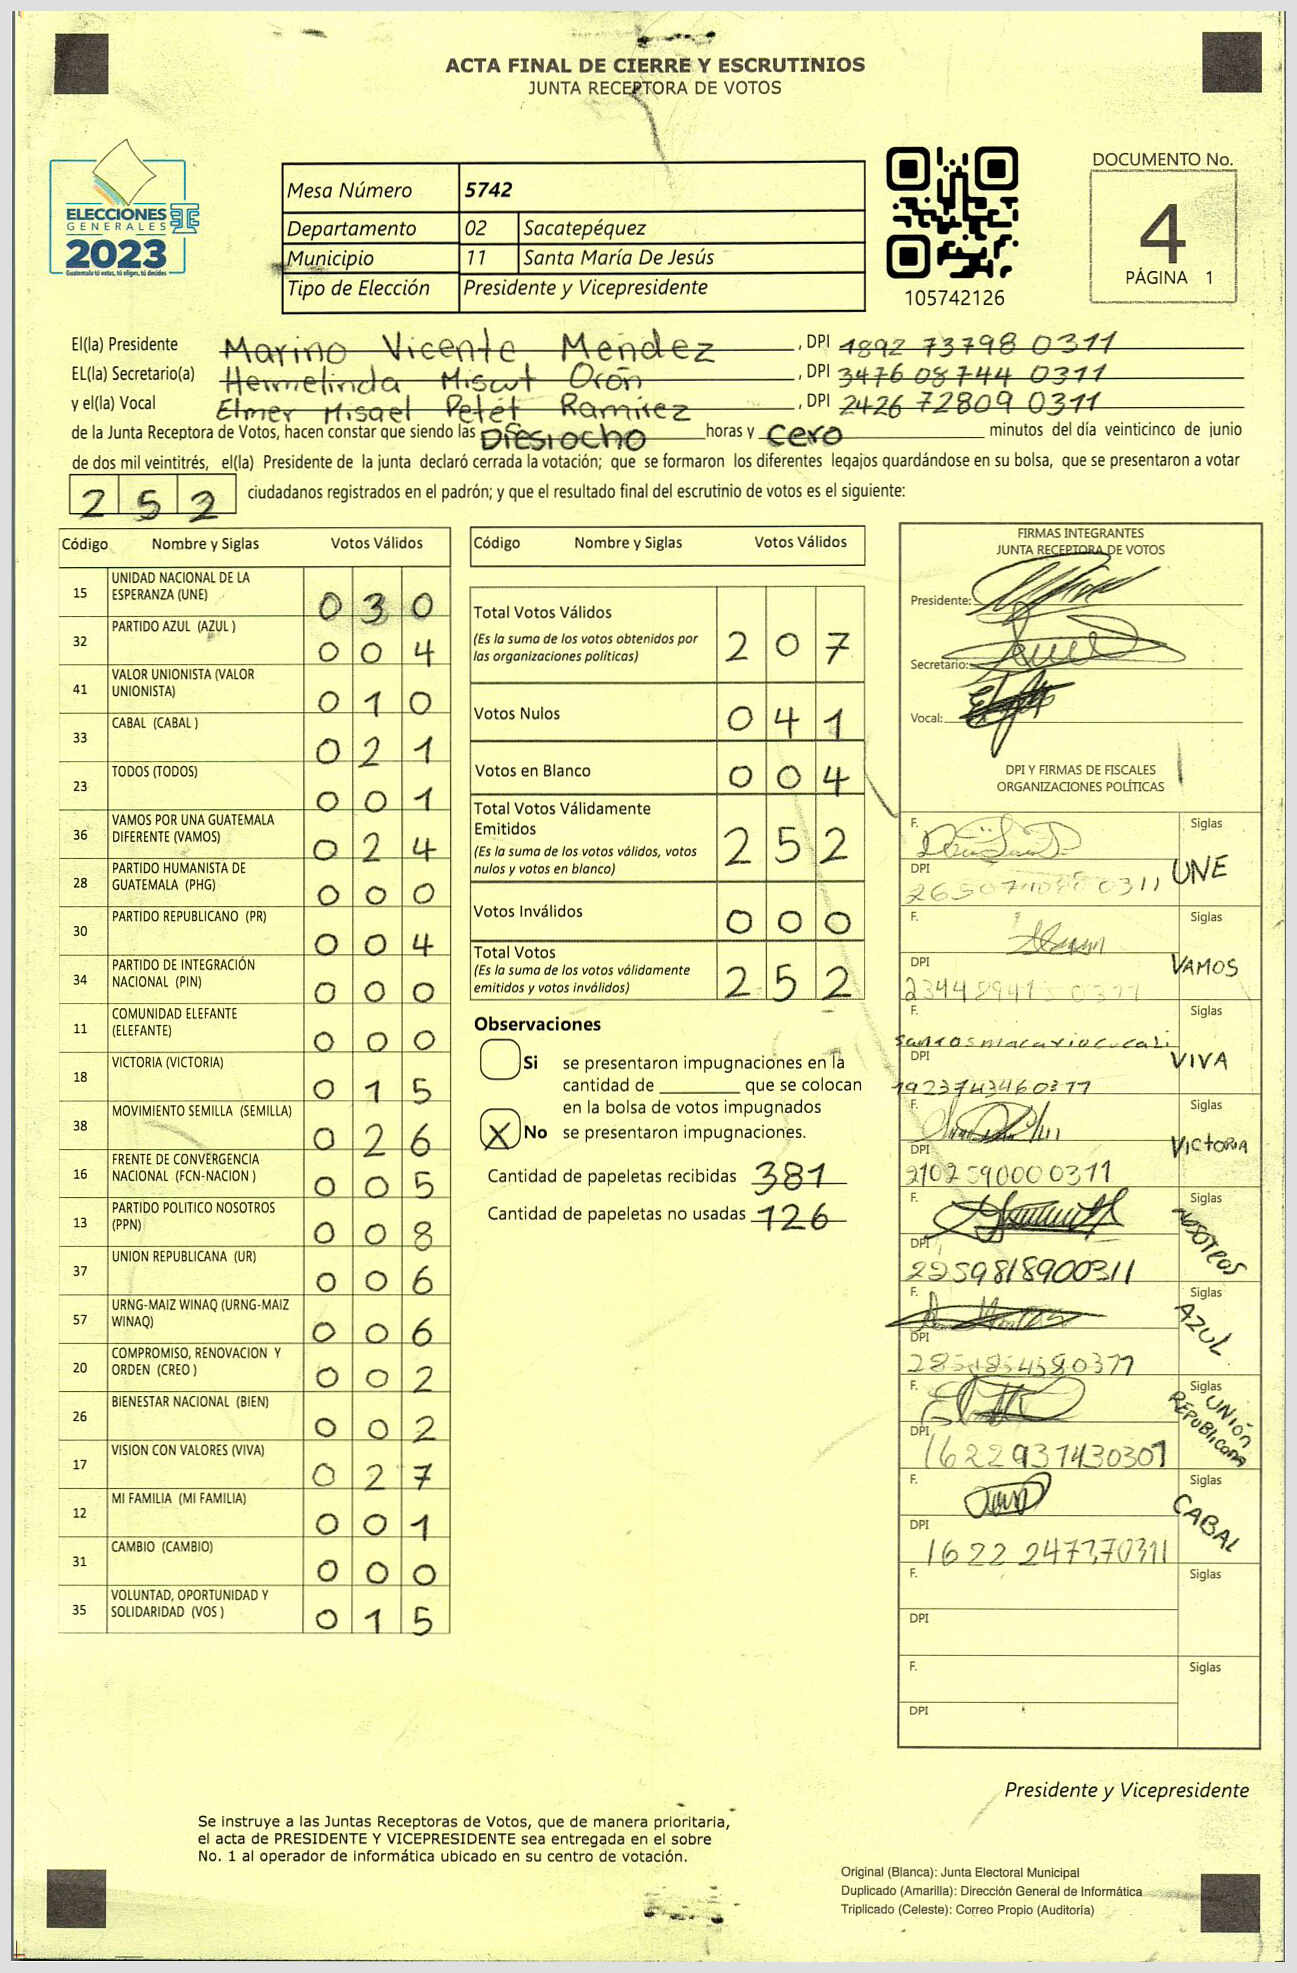 ACTA FINAL DE CIERRE Y ESCRUTINIOS
JUNTA RECEPTORA DE VOTOS
ELECCIONES
GENERALES
2023
Guatemala tú votas, tú eliges, tú decides
Mesa Número 5742
Departamento 02 Sacatepéquez
Municipio 11 Santa María De Jesús
Tipo de Elección Presidente y Vicepresidente
105742126
DOCUMENTO No.
4
PÁGINA 1
El(la) Presidente Marino Vicente Mendez , DPI 1892 73798 0311
EL(la) Secretario(a) Hermelinda Miscut Orón , DPI 3476 08744 0311
y el(la) Vocal Elmer Misael Petét Ramírez , DPI 2426 72809 0311
de la Junta Receptora de Votos, hacen constar que siendo las Diesiocho horas y cero minutos del día veinticinco de junio
de dos mil veintitrés, el(la) Presidente de la junta declaró cerrada la votación; que se formaron los diferentes legajos guardándose en su bolsa, que se presentaron a votar
252 ciudadanos registrados en el padrón; y que el resultado final del escrutinio de votos es el siguiente:
Código Nombre y Siglas Votos Válidos
15 UNIDAD NACIONAL DE LA ESPERANZA (UNE) 030
32 PARTIDO AZUL (AZUL ) 004
41 VALOR UNIONISTA (VALOR UNIONISTA) 010
33 CABAL (CABAL ) 021
23 TODOS (TODOS) 001
36 VAMOS POR UNA GUATEMALA DIFERENTE (VAMOS) 024
28 PARTIDO HUMANISTA DE GUATEMALA (PHG) 000
30 PARTIDO REPUBLICANO (PR) 004
34 PARTIDO DE INTEGRACIÓN NACIONAL (PIN) 000
11 COMUNIDAD ELEFANTE (ELEFANTE) 000
18 VICTORIA (VICTORIA) 015
38 MOVIMIENTO SEMILLA (SEMILLA) 026
16 FRENTE DE CONVERGENCIA NACIONAL (FCN-NACION ) 005
13 PARTIDO POLITICO NOSOTROS (PPN) 008
37 UNION REPUBLICANA (UR) 006
57 URNG-MAIZ WINAQ (URNG-MAIZ WINAQ) 006
20 COMPROMISO, RENOVACION Y ORDEN (CREO ) 002
26 BIENESTAR NACIONAL (BIEN) 002
17 VISION CON VALORES (VIVA) 027
12 MI FAMILIA (MI FAMILIA) 001
31 CAMBIO (CAMBIO) 000
35 VOLUNTAD, OPORTUNIDAD Y SOLIDARIDAD (VOS ) 015
Código Nombre y Siglas Votos Válidos
Total Votos Válidos 207
(Es la suma de los votos obtenidos por
las organizaciones políticas)
Votos Nulos 041
Votos en Blanco 004
Total Votos Válidamente
Emitidos 252
(Es la suma de los votos válidos, votos
nulos y votos en blanco)
Votos Inválidos 000
Total Votos 252
(Es la suma de los votos válidamente
emitidos y votos inválidos)
Observaciones
Si se presentaron impugnaciones en la
cantidad de ________ que se colocan
en la bolsa de votos impugnados
X No se presentaron impugnaciones.
Cantidad de papeletas recibidas 381
Cantidad de papeletas no usadas 126
FIRMAS INTEGRANTES
JUNTA RECEPTORA DE VOTOS
Presidente:
Secretario:
Vocal:
DPI Y FIRMAS DE FISCALES
ORGANIZACIONES POLÍTICAS
F. Siglas
DPI UNE
F. Siglas
DPI VAMOS
F. Siglas
DPI VIVA
1923743460311
F. Siglas
DPI VICTORIA
2102590000311
F. Siglas
DPI NOSOTROS
2259818900311
F. Siglas
DPI AZUL
F. Siglas
DPI UNIÓN REPUBLICANA
1622937430301
F. Siglas
DPI CABAL
1622 247370311
F. Siglas
DPI
F. Siglas
DPI
Presidente y Vicepresidente
Se instruye a las Juntas Receptoras de Votos, que de manera prioritaria,
el acta de PRESIDENTE Y VICEPRESIDENTE sea entregada en el sobre
No. 1 al operador de informática ubicado en su centro de votación.
Original (Blanca): Junta Electoral Municipal
Duplicado (Amarilla): Dirección General de Informática
Triplicado (Celeste): Correo Propio (Auditoria)